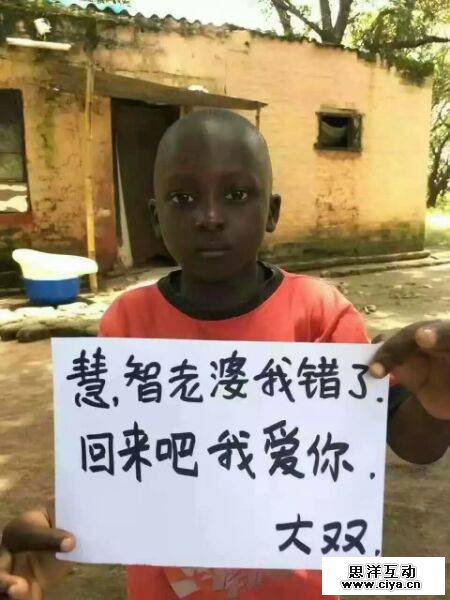 慧,智老婆我错了.
回来吧我爱你.
大双.
思洋互动
www.ciya.cn